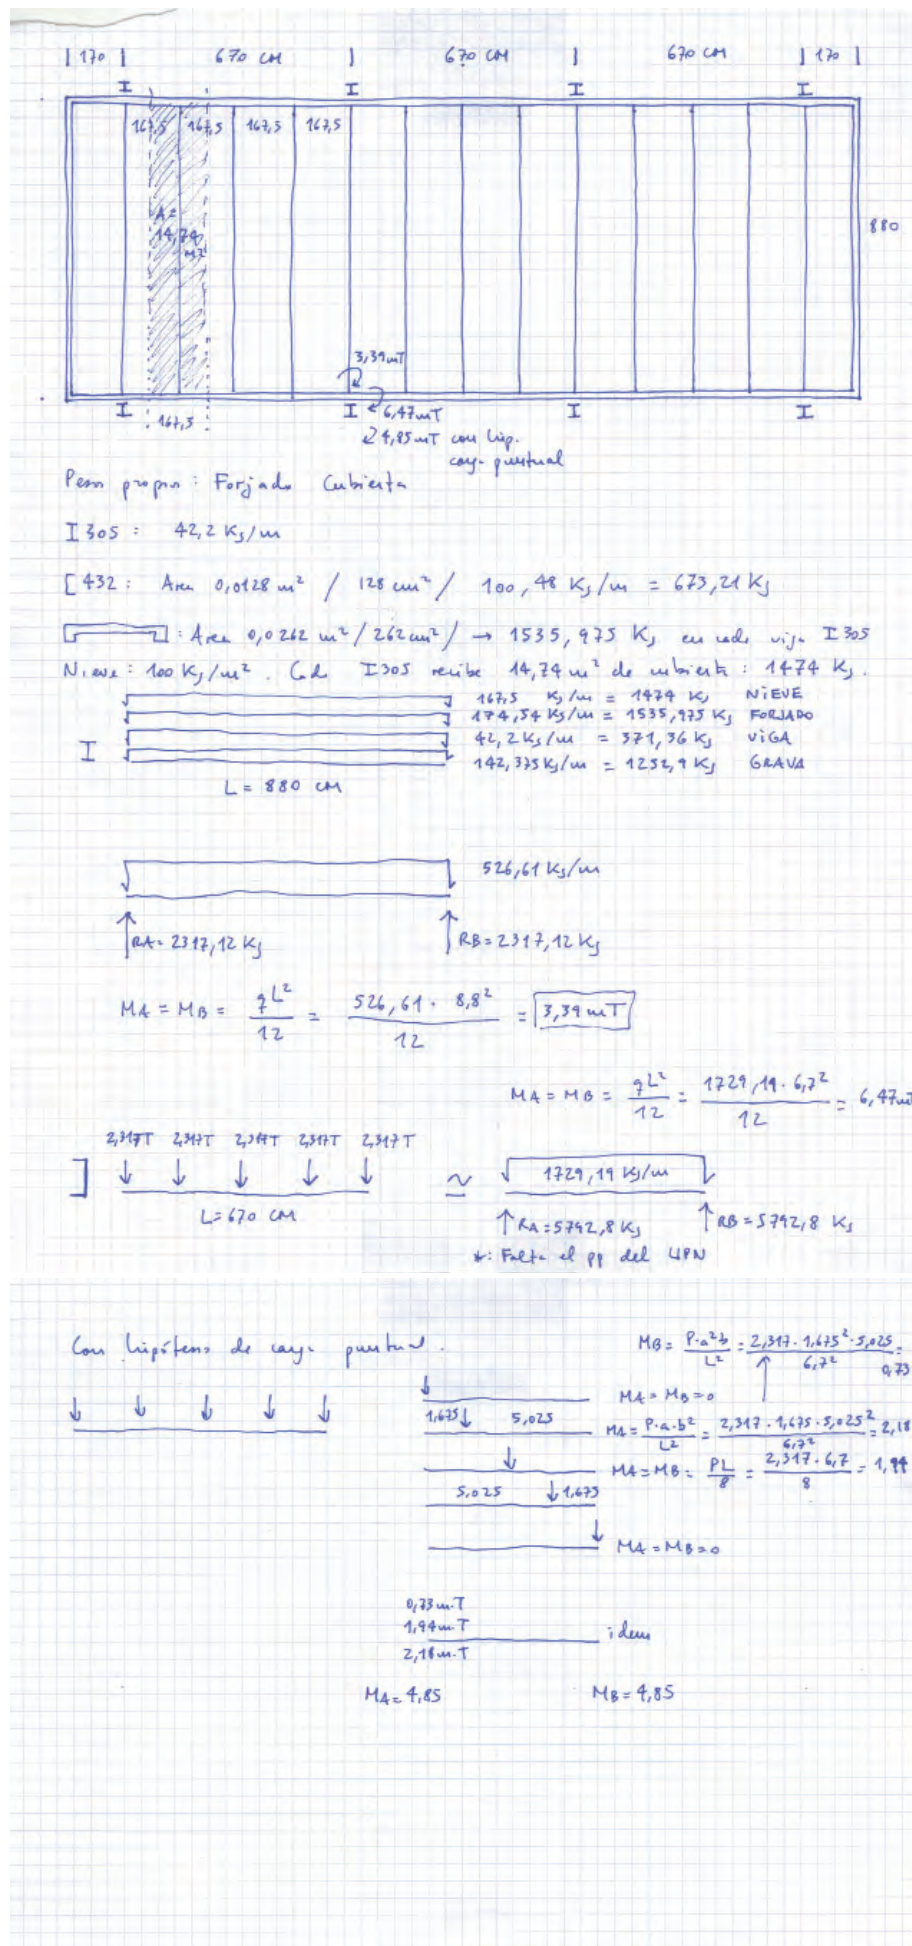 170 670 CM 670 CM 670 CM 170
I I I I
167,5 167,5 167,5 167,5
A=
14,74
m2
880
3,39mT
I I I I
167,5
6,47mT
4,85mT con hip.
carga puntual
Peso propio: Forjado Cubierta
I 305 : 42,2 Kg/m
[ 432: Area 0,0128 m² / 128 cm² / 100,48 Kg/m = 673,21 Kg
: Area 0,0262 m² / 262cm² / → 1535,975 Kg en cada viga I305
Nieve: 100 Kg/m². Cada I305 recibe 14,74 m² de cubierta: 1474 Kg.
167,5 Kg/m = 1474 Kg NIEVE
174,54 Kg/m = 1535,975 Kg FORJADO
42,2 Kg/m = 371,36 Kg VIGA
I 142,375 Kg/m = 1252,9 Kg GRAVA
L = 880 CM
526,61 Kg/m
RA= 2317,12 Kg RB= 2317,12 Kg
MA = MB = qL²/12 = 526,61 · 8,8²/12 = 3,39 mT
MA = MB = qL²/12 = 1729,19 · 6,7²/12 = 6,47m
2,317T 2,317T 2,317T 2,317T 2,317T
] ≃ 1729,19 Kg/m
L=670 CM
RA=5792,8 Kg RB=5792,8 Kg
*: Falta el pp del UPN
Con hipótesis de carga puntual.
MB = P·a²·b/L² = 2,317 · 1,675² · 5,025/6,7² = 0,73
MA = MB = 0
1,675 5,025
MA = P·a·b²/L² = 2,317 · 1,675 · 5,025²/6,7² = 2,18
MA = MB = PL/8 = 2,317 · 6,7/8 = 1,94
5,025 1,675
MA = MB = 0
0,73 m.T
1,94 m.T
idem
2,18 m.T
MA = 4,85 MB = 4,85